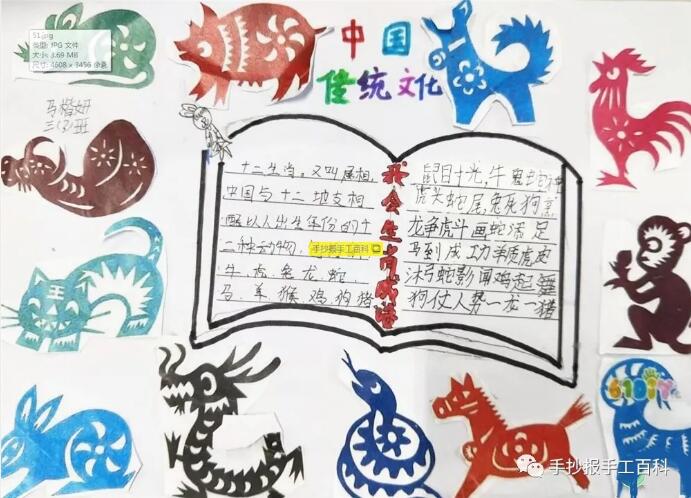 51.jpg
类型: JPG 文件
大小: 3.69 MB
尺寸: 4608 x 3456 像素
中国
传统文化
马楷妍
三(3)班
十二生肖，又叫属相，
中国与十二地支相
配以人出生年份的十
二种动物，
牛、虎、兔、龙、蛇、
马、羊、猴、鸡、狗、猪
我会生肖成语
鼠目寸光，牛鬼蛇神
虎头蛇尾，兔死狗烹
龙争虎斗 画蛇添足
马到成功 羊质虎皮
沐 弓蛇影 闻鸡起舞
狗仗人势 一龙一猪
手抄报手工百科
手抄报手工百科